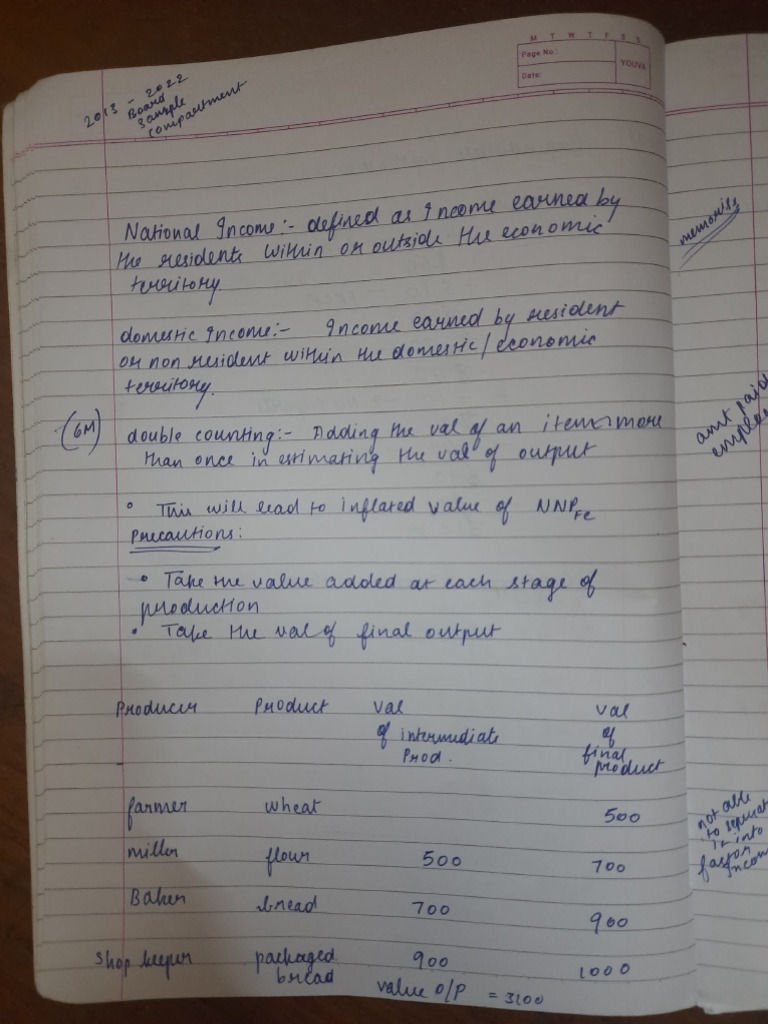 M T W T F S S
Page No.:
Date:
YOUVA
2013 - 2022
Board
Sample
Compartment
National Income:- defined as Income earned by
the residents within or outside the economic
territory
domestic Income:- Income earned by resident
or non resident within the domestic/economic
territory.
(6M)
double counting:- Adding the val of an item more
than once in estimating the val of output
• This will lead to inflated value of NNPFC
Precautions:
• Take the value added at each stage of
production
• Take the val of final output
Producer Product Val Val
of intermediate of
Prod. final
product
farmer wheat 500
miller flour 500 700
Baker bread 700 900
Shop keeper packaged 900 1000
bread
value O/P = 3100
memorise
amt paid
not able
to separat
it into
factor
incom